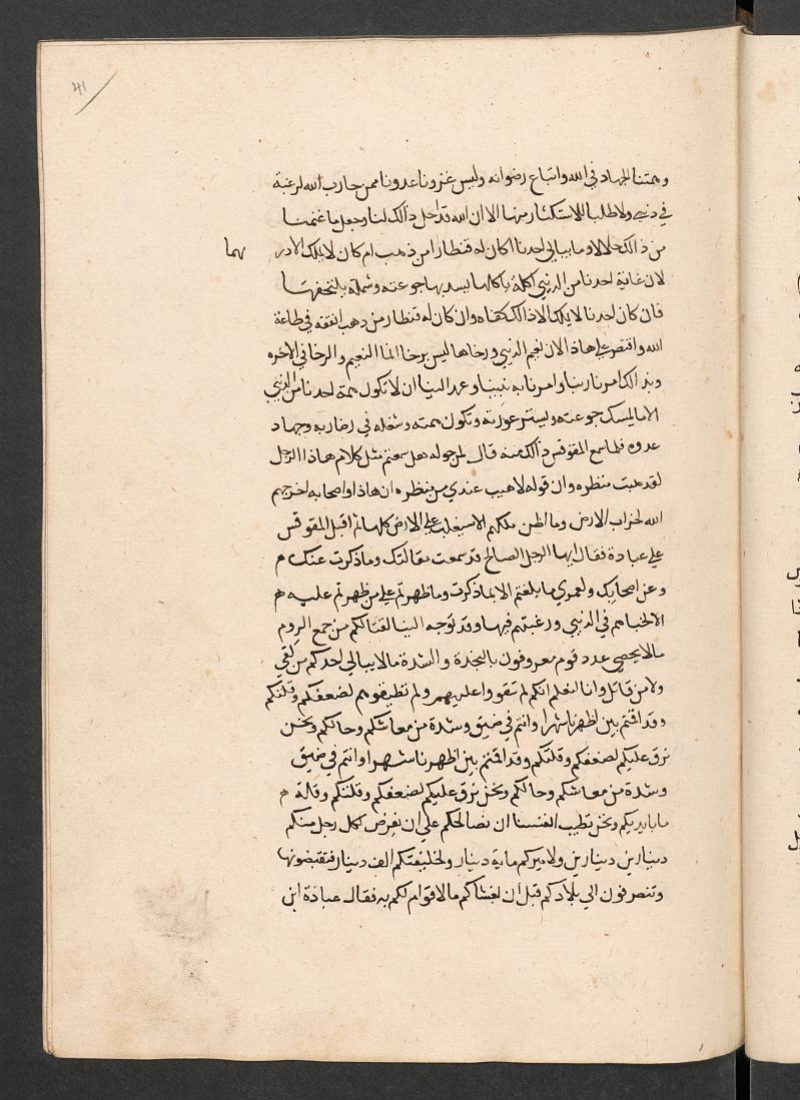 41
وهمتنا الجهاد في الله واتباع رضوانه وليس غزونا عدونا ممن حارب الله لرغبة
في دنيى ولا طلبا للاستكثار منها الا ان الله قد احل ذالك لنا وجعل ما غنمنا
من ذالك حلالا وما يبالي احدنا اكان له قنطارا من ذهب ام كان لا يملك الا درهما
لان غاية احدنا من الدنيى اكلة ياكلها يسد بها جوعته وشملة يلتحفها
فان كان احدنا لا يملك الا ذالك كفاه وان كان له قنطار من ذهب انفقه في طاعة
الله واقتصر على هاذا لان نعيم الدنيى ورخاها ليس برخا انما النعيم والرخا في الاخره
وبذالك امرنا ربنا وامرنا به نبينا وعهد الينا ان لا تكون همة احدنا من الدنيى
الا ما يمسك جوعته ويستر عورته وتكون همته وشغله في رضا ربه وجهاد
عدوه فلما سمع المقوقس ذالك منه قال لمن حوله هل سمعتم مثل كلام هاذا الرجل
لقد هبت منظره وان قوله لاهيب عندي من منظره ان هاذا واصحابه اخرجهم
الله لخراب الارض وما اظن ملكهم الا سيغلب على الارض كلها ثم اقبل المقوقس
على عبادة فقال ايها الرجل الصالح قد سمعت مقالتك وما ذكرت عنك م
وعن اصحابك ولعمري ما بلغتم الا بما ذكرت وما ظهرتم على من ظهرتم عليه م
الا لحبهم في الدنيى ورغبتهم فيها وقد توجه الينا لقتالكم من جمع الروم
ما لا يحصى عدد قوم معروفون بالنجدة والشدة ما لا يبالي احدكم من لقي
ولا من قاتل وانا لنعلم انكم لم تقووا عليهم ولم تطيقوهم لضعفكم وقلتكم
وقد اقمتم بين اظهرنا شهرا وانتم في ضيق وشدة من معاشكم وحالكم ونحن
نرق عليكم لضعفكم وقلتكم وقد اقمتم بين اظهرنا شهرا وانتم في ضيق
وشدة من معاشكم وحالكم ونحن نرق عليكم لضعفكم وقلتكم وقلة م
ما بايديكم ونحن تطيب انفسنا ان نصالحكم على ان نفرض لكل رجل منكم
دينارين دينارين ولاميركم ماية دينار ولخليفتكم الف دينار فتقبضونها
وتنصرفون الى بلادكم قبل ان يغشاكم ما لا قوام لكم به فقال عبادة ابن